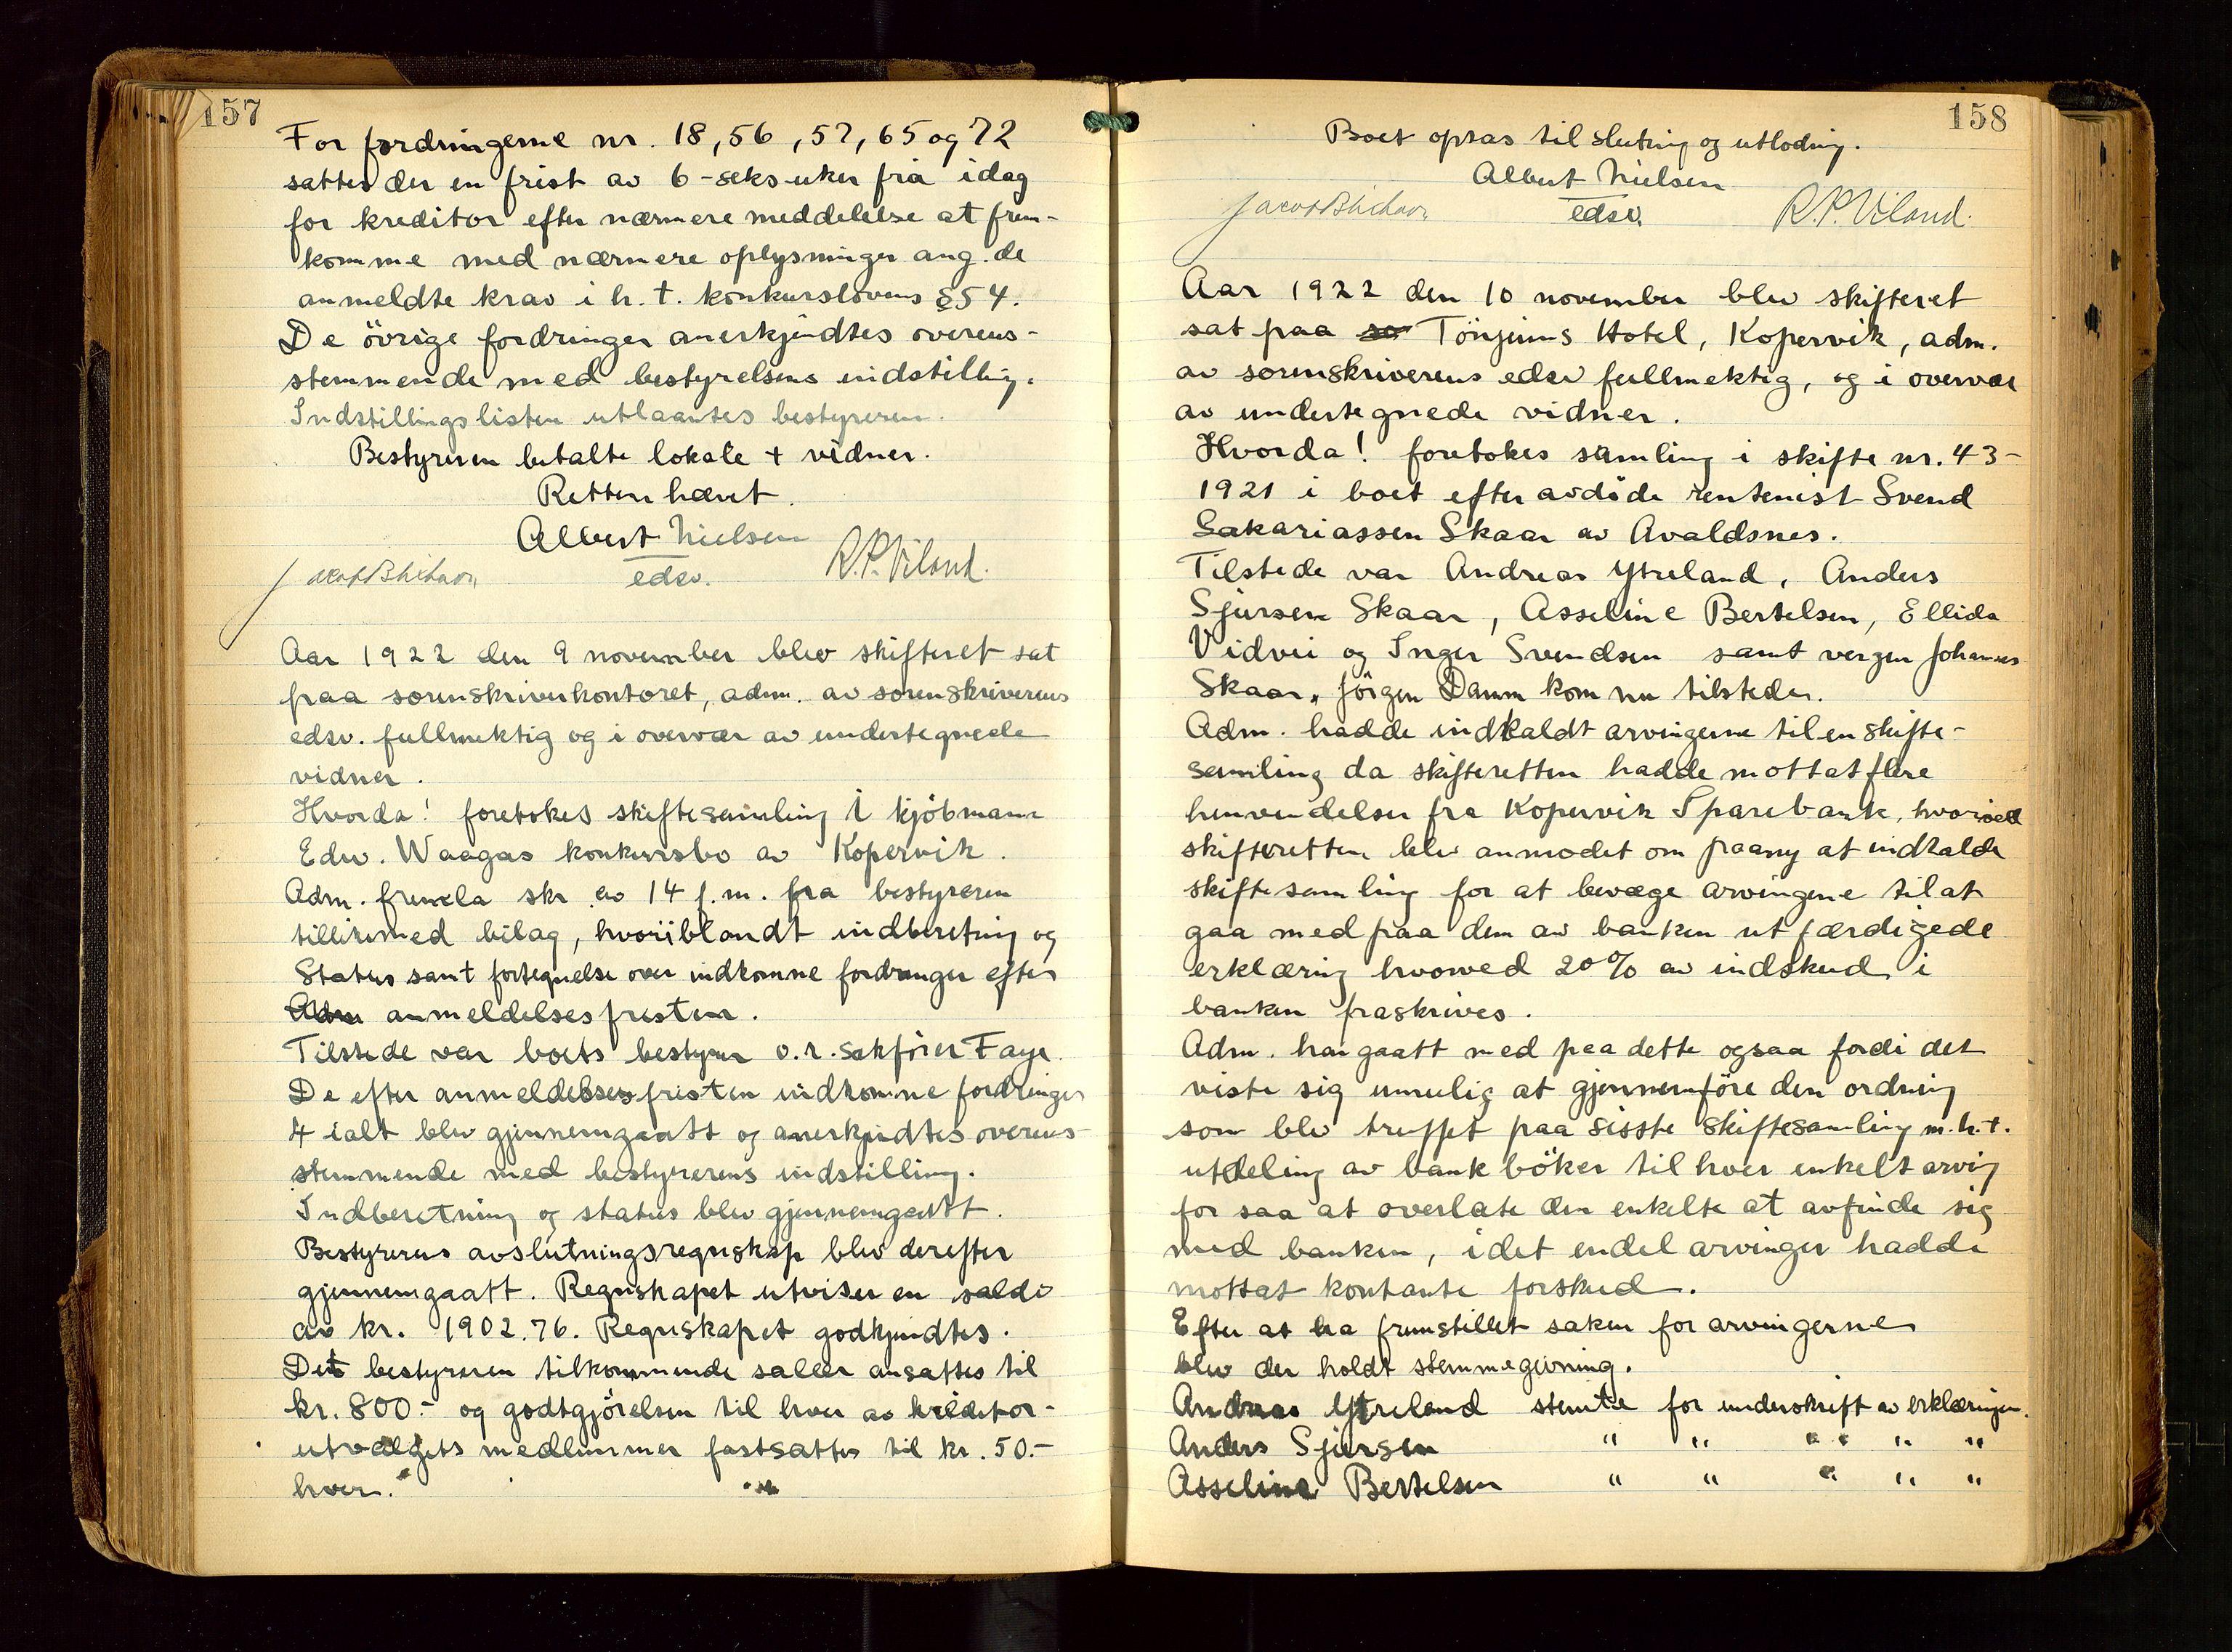 157
For fordringerne nr. 18, 56, 57, 65 og 72
sattes der en frist av 6-seks uker fra idag
for kreditor efter nærmere meddelelse at frem-
komme med nærmere oplysninger ang. de
anmeldte krav i h. t. konkurslovens §54.
De övrige fordringer anerkjendtes overens-
stemmende med bestyrelsens indstilling.
Indstillingslisten utlaantes bestyreren.
Bestyreren betalte lokale + vidner.
Retten hævet.
Albert Nielsen
edsv. R.P. Viland.
Aar 1922 den 9 november blev skifteret sat
paa sorenskriverkontoret, adm. av sorenskriverens
edsv. fullmektig og i overvær av undertegnede
vidner.
Hvorda! foretokes skiftesamling i kjöbmann
Edv. Waagas konkursbo av Kopervik.
Adm. fremla skr. av 14 f.m. fra bestyreren
tillikemed bilag, hvoriblandt indberetning og
Status samt fortegnelse over indkomne fordringer efter
anmeldelsesfristen.
Tilstede var boets bestyrer o.r. sakförer Faye.
De efter anmeldelsesfristen indkomne fordringer
4 ialt blev gjennemgaatt og anerkjendtes overens-
stemmende med bestyrerens indstilling.
Indberetning og status blev gjennemgaatt.
Bestyrerens avslutningsregnskap blev derefter
gjennemgaatt. Regnskapet utviser en saldo
av kr. 1902.76. Regnskapet godkjendtes.
Det bestyreren tilkommende salær ansattes til
kr. 800.- og godtgjörelsen til hver av kreditor-
utvalgets medlemmer fastsattes til kr. 50.-
hver.
158
Boet optas til slutning og utlodning.
Albert Nielsen
edsv. R.P. Viland.
Aar 1922 den 10 november blev skifteret
sat paa Tönjums Hotel, Kopervik, adm.
av sorenskriverens edsv fullmektig, og i overvær
av undertegnede vidner.
Hvorda! foretokes samling i skifte nr. 43-
1921 i boet efter avdöde rentenist Svend
Sakariassen Skaar av Avaldsnes.
Tilstede var Andreas Ytreland, Anders
Sjursen Skaar, Asseline Bertelsen, Ellida
Vidvei og Inger Svendsen samt vergen Johannes
Skaar. Jörgen Damm kom nu tilstede.
Adm. hadde indkaldt arvingerne til en skifte-
samling da skifteretten hadde mottat flere
henvendelser fra Kopervik Sparebank, hvorved
skifteretten blev anmodet om paany at indkalde
skiftesamling for at bevæge arvingene til at
gaa med paa den av banken utfærdigede
erklæring hvorved 20% av indskud i
banken fraskrives.
Adm. har gaatt med paa dette ogsaa fordi det
viste sig umulig at gjennemföre den ordning
som blev truffet paa sisste skiftesamling m.h.t.
utdeling av bank böker til hver enkelt arving
for saa at overlate den enkelte at avfinde sig
med banken, idet endel arvinger hadde
mottat kontante forskud.
Efter at ha fremstillet saken for arvingerne
blev der holdt stemmegivning.
Andreas Ytreland stemte for underskrift av erklæringen.
Anders Sjursen " " " " "
Asseline Bertelsen " " " " "